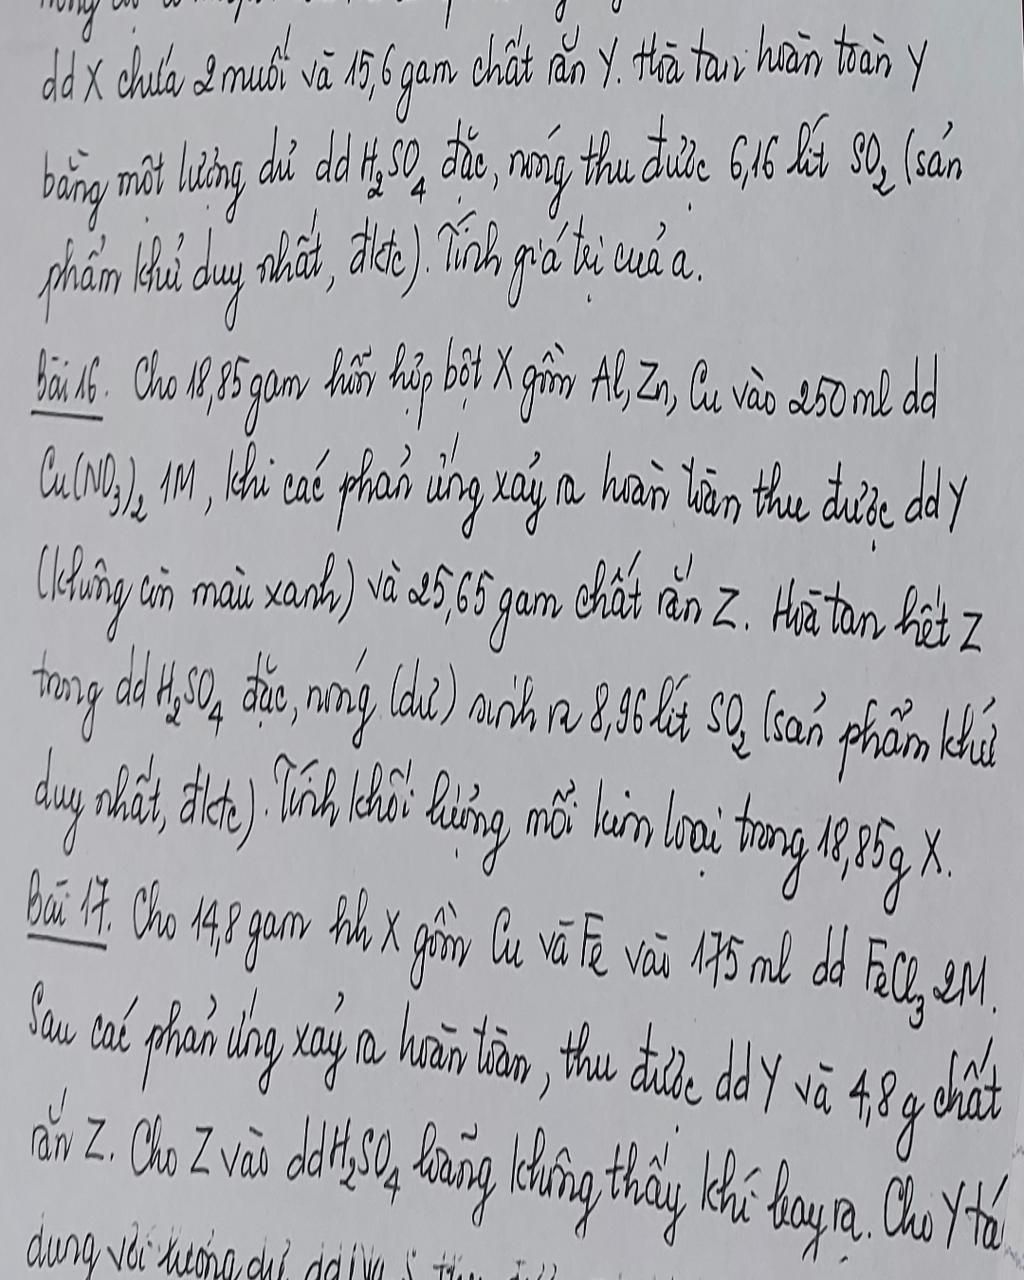 dd X chứa 2 muối và 15,6 gam chất rắn Y. Hoà tan hoàn toàn Y
bằng một lượng dư dd H₂SO₄ đặc, nóng thu được 6,16 lít SO₂ (sản
phẩm khử duy nhất, đktc). Tính giá trị của a.
Bài 16. Cho 18,85 gam hỗn hợp bột X gồm Al, Zn, Cu vào 250 ml dd
Cu(NO₃)₂ 1M, khi các phản ứng xảy ra hoàn toàn thu được dd Y
(không còn màu xanh) và 25,65 gam chất rắn Z. Hoà tan hết Z
trong dd H₂SO₄ đặc, nóng (dư) sinh ra 8,96 lít SO₂ (sản phẩm khử
duy nhất, đktc). Tính khối lượng mỗi kim loại trong 18,85g X.
Bài 17. Cho 14,8 gam hh X gồm Cu và Fe vào 175 ml dd FeCl₃ 2M.
Sau các phản ứng xảy ra hoàn toàn, thu được dd Y và 4,8 g chất
rắn Z. Cho Z vào dd H₂SO₄ loãng không thấy khí bay ra. Cho Y tá
dung với lượng dư dd